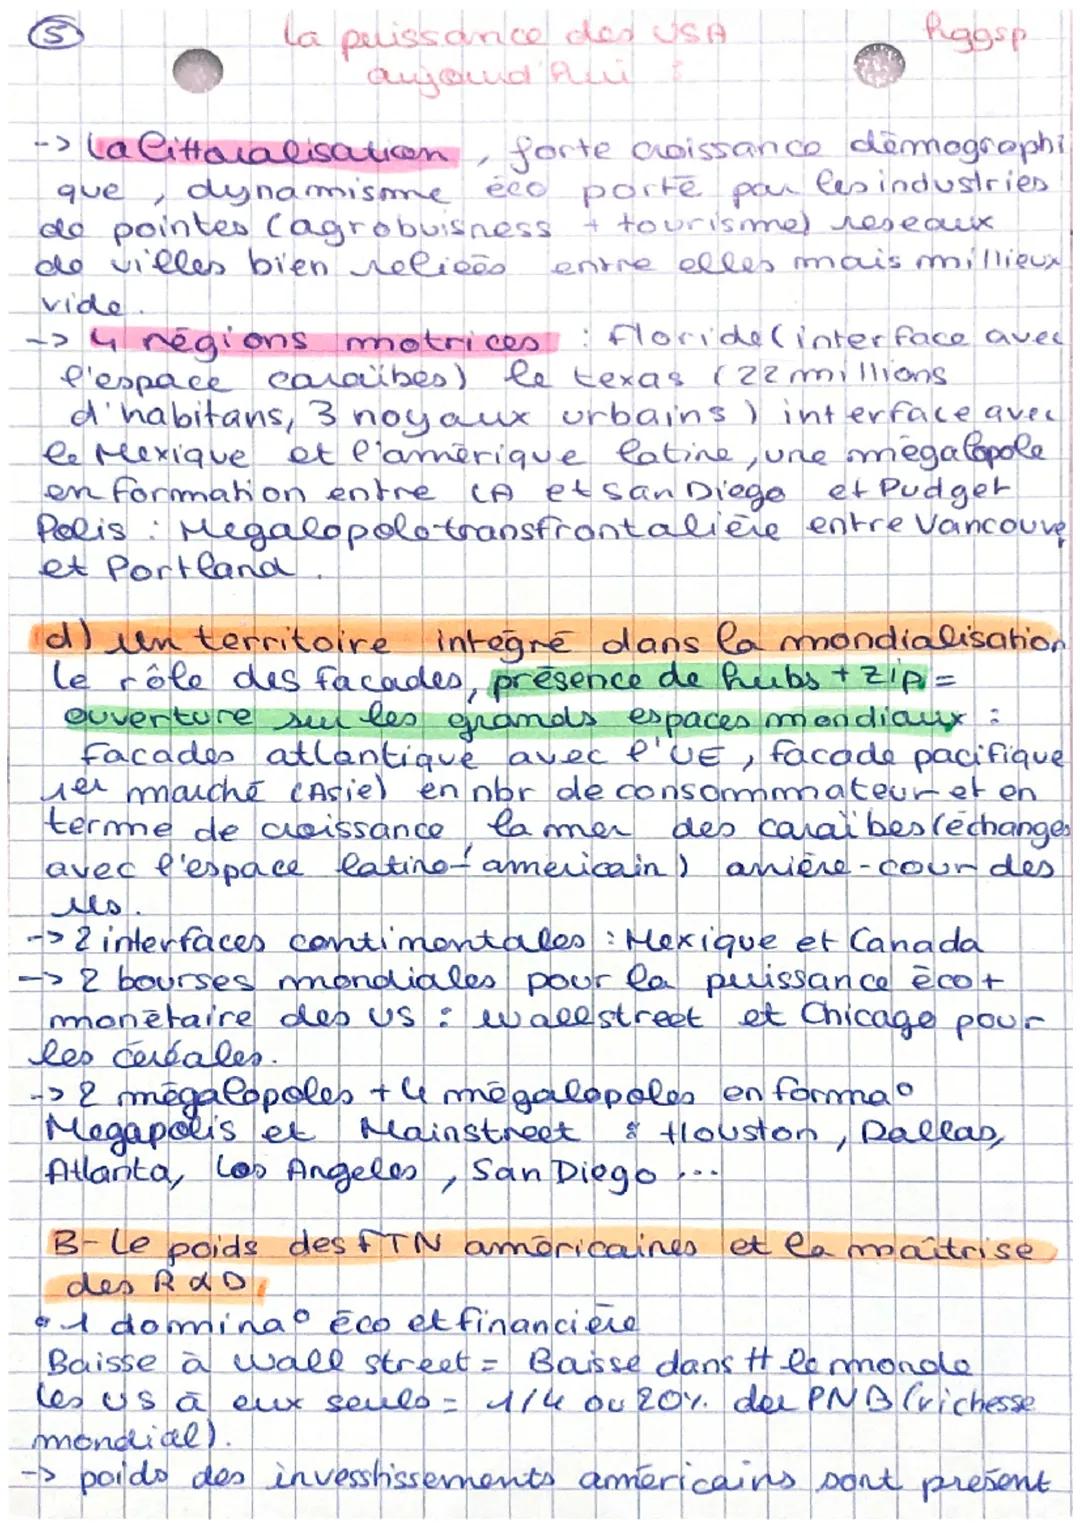 5 La puissance des USA Hggsp
aujourd'hui :
-> La littoralisation, forte croissance démographi
que, dynamisme éco porté par les industries
de pointes (agrobuisness + tourisme) reseaux
de villes bien reliées entre elles mais millieux
vide.
-> 4 régions motrices : Floride (interface avec
l'espace caraïbes) le texas (22 millions
d'habitans, 3 noyaux urbains) interface avec
le Mexique et l'amérique latine, une mégalopole
en formation entre LA et San Diego et Pudget
Polis : Megalopole transfrontalière entre Vancouve
et Portland.
d) un territoire intégré dans la mondialisation
le rôle des facades, présence de hubs + zip =
ouverture sur les grands espaces mondiaux :
facades atlantique avec l'UE, facade pacifique
1er marché (Asie) en nbr de consommateur et en
terme de croissance la mer des caraïbes (échanges
avec l'espace latino-américain) arrière-cour des
US.
-> 2 interfaces continentales : Mexique et Canada
-> 2 bourses mondiales pour la puissance éco +
monétaire des US : wallstreet et Chicago pour
les céréales.
-> 2 mégalopoles + 4 mégalopoles en forma°
Megapolis et Mainstreet & Houston, Dallas,
Atlanta, Los Angeles, San Diego ...
B- Le poids des FTN américaines et la maîtrise
des R&D
• 1 domina° éco et financière
Baisse à wall street = Baisse dans tt le monde
les US à eux seuls = 1/4 ou 20% du PNB (richesse
mondial).
-> poids des investissements américains sont présent